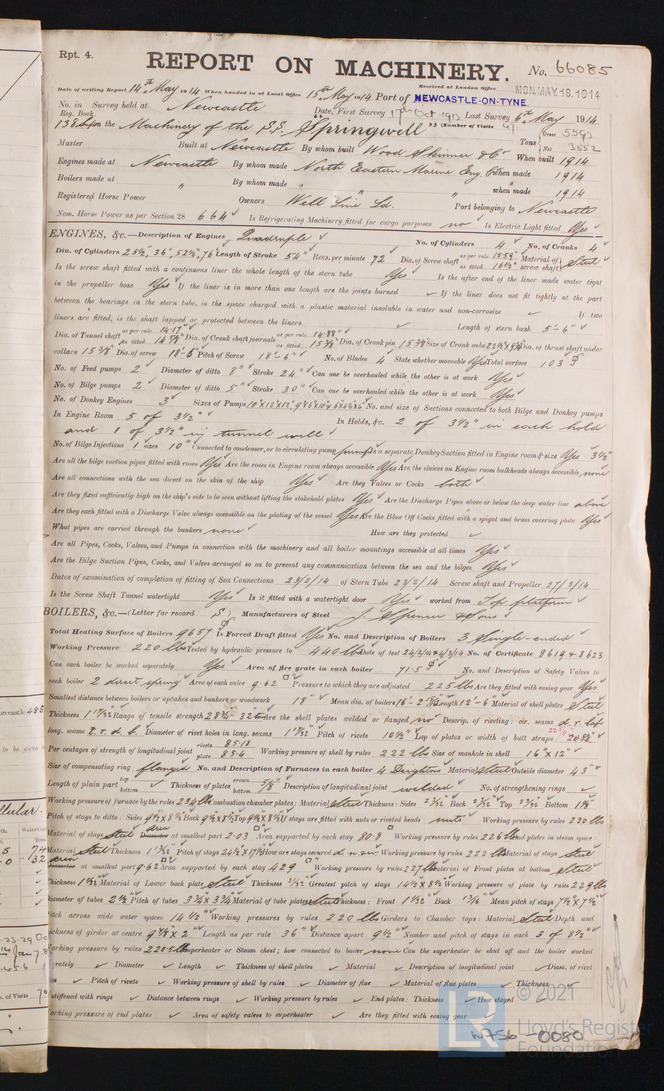 Rpt. 4.
REPORT ON MACHINERY. No. 66085
Received at London Office MON. MAY. 18. 1914
Date of writing Report 14th May 1914 When handed in at Local Office 15th May 1914 Port of NEWCASTLE-ON-TYNE.
No. in Survey held at Newcastle Date, First Survey Oct 1913 Last Survey 6th May 1914
Reg. Book. (Number of Visits
on the Machinery of the S.S. "Springwell" Tons Gross 5593 Net 3552
Master Built at Newcastle By whom built Wood Skinner & Co When built 1914
Engines made at Newcastle By whom made North Eastern Marine Eng. Co when made 1914
Boilers made at " By whom made " when made 1914
Registered Horse Power Owners Well Line Ld. Port belonging to Newcastle
Nom. Horse Power as per Section 28 664 Is Refrigerating Machinery fitted for cargo purposes no Is Electric Light fitted Yes
ENGINES, &c.—Description of Engines Quadruple No. of Cylinders 4 No. of Cranks 4
Dia. of Cylinders 25½, 36, 52½, 76 Length of Stroke 54" Revs. per minute 72 Dia. of Screw shaft as per rule 15.59 as fitted 16¾ Material of screw shaft Steel
Is the screw shaft fitted with a continuous liner the whole length of the stern tube Yes Is the after end of the liner made water tight
in the propeller boss Yes If the liner is in more than one length are the joints burned If the liner does not fit tightly at the part
between the bearings in the stern tube, is the space charged with a plastic material insoluble in water and non-corrosive If two
liners are fitted, is the shaft lapped or protected between the liners Length of stern bush 5'-6"
Dia. of Tunnel shaft as per rule 14.17 as fitted 14⅞ Dia. of Crank shaft journals as per rule 14.88 as fitted 15⅜ Dia. of Crank pin 15⅜ Size of Crank webs Dia. of thrust shaft under
collars 15⅜ Dia. of screw 18'-6 Pitch of Screw 18'-6" No. of Blades 4 State whether moveable Yes Total surface 103
No. of Feed pumps 2 Diameter of ditto 8" Stroke 24" Can one be overhauled while the other is at work Yes
No. of Bilge pumps 2 Diameter of ditto 5" Stroke 30" Can one be overhauled while the other is at work Yes
No. of Donkey Engines 3 Sizes of Pumps No. and size of Suctions connected to both Bilge and Donkey pumps
In Engine Room 5 of 3½" In Holds, &c. 2 of 3½" in each hold
and 1 of 3½" in tunnel well
No. of Bilge Injections 1 sizes 10" Connected to condenser, or to circulating pump pump Is a separate Donkey Suction fitted in Engine room & size Yes 3½"
Are all the bilge suction pipes fitted with roses Yes Are the roses in Engine room always accessible Yes Are the sluices on Engine room bulkheads always accessible none
Are all connections with the sea direct on the skin of the ship Yes Are they Valves or Cocks both
Are they fixed sufficiently high on the ship's side to be seen without lifting the stokehold plates Yes Are the Discharge Pipes above or below the deep water line above
Are they each fitted with a Discharge Valve always accessible on the plating of the vessel Yes Are the Blow Off Cocks fitted with a spigot and brass covering plate Yes
What pipes are carried through the bunkers none How are they protected
Are all Pipes, Cocks, Valves, and Pumps in connection with the machinery and all boiler mountings accessible at all times Yes
Are the Bilge Suction Pipes, Cocks, and Valves arranged so as to prevent any communication between the sea and the bilges Yes
Dates of examination of completion of fitting of Sea Connections 23/2/14 of Stern Tube 23/2/14 Screw shaft and Propeller 27/3/14
Is the Screw Shaft Tunnel watertight Yes Is it fitted with a watertight door Yes worked from Top platform
BOILERS, &c.—(Letter for record S) Manufacturers of Steel J. Spencer & Sons
Total Heating Surface of Boilers 9657 Is Forced Draft fitted Yes No. and Description of Boilers 3 Single-ended
Working Pressure 220 lbs Tested by hydraulic pressure to 440 lbs Date of test No. of Certificate 8619 & 8623
Can each boiler be worked separately Yes Area of fire grate in each boiler 71.5 No. and Description of Safety Valves to
each boiler 2 direct spring Area of each valve 9.62 Pressure to which they are adjusted 225 lbs Are they fitted with easing gear Yes
Smallest distance between boilers or uptakes and bunkers or woodwork 18" Mean dia. of boilers Length 12'-6 Material of shell plates Steel
Thickness Range of tensile strength Are the shell plates welded or flanged no Descrip. of riveting: cir. seams d.r. lap
long. seams Diameter of rivet holes in long. seams Pitch of rivets 10½" Lap of plates or width of butt straps
Per centages of strength of longitudinal joint rivets 85.18 plate 85.4 Working pressure of shell by rules 222 lbs Size of manhole in shell 16" x 12"
Size of compensating ring flanged No. and Description of Furnaces in each boiler 4 Deightons Material Steel Outside diameter 43"
Length of plain part top bottom Thickness of plates crown bottom ⅝ Description of longitudinal joint welded No. of strengthening rings
Working pressure of furnace by the rules 234 lbs Combustion chamber plates: Material Steel Thickness: Sides Back Top Bottom
Pitch of stays to ditto: Sides Back Top If stays are fitted with nuts or riveted heads nuts Working pressure by rules 220 lbs
Material of stays Steel Area at smallest part 2.03 Area supported by each stay 80.8 Working pressure by rules 226 lbs End plates in steam space:
Material Steel Thickness Pitch of stays How are stays secured d.n.&w. Working pressure by rules 222 lbs Material of stays Steel
Area at smallest part 9.62 Area supported by each stay 429 Working pressure by rules 227 lbs Material of Front plates at bottom Steel
Thickness Material of Lower back plate Steel Thickness Greatest pitch of stays Working pressure of plate by rules 229 lbs
Diameter of tubes 2½ Pitch of tubes 3¾ x 3¾ Material of tube plates Steel Thickness: Front Back Mean pitch of stays
Pitch across wide water spaces 14½" Working pressures by rules 220 lbs Girders to Chamber tops: Material Steel Depth and
thickness of girder at centre Length as per rule 36" Distance apart 9½" Number and pitch of stays in each 3 of 8½"
Working pressure by rules Superheater or Steam chest; how connected to boiler none Can the superheater be shut off and the boiler worked
separately Diameter Length Thickness of shell plates Material Description of longitudinal joint Diam. of rivet
Pitch of rivets Working pressure of shell by rules Diameter of flue Material of flue plates Thickness
If stiffened with rings Distance between rings Working pressure by rules End plates: Thickness How stayed
Working pressure of end plates Area of safety valves to superheater Are they fitted with easing gear
© 2021
Lloyd's Register
Foundation
W756-0080